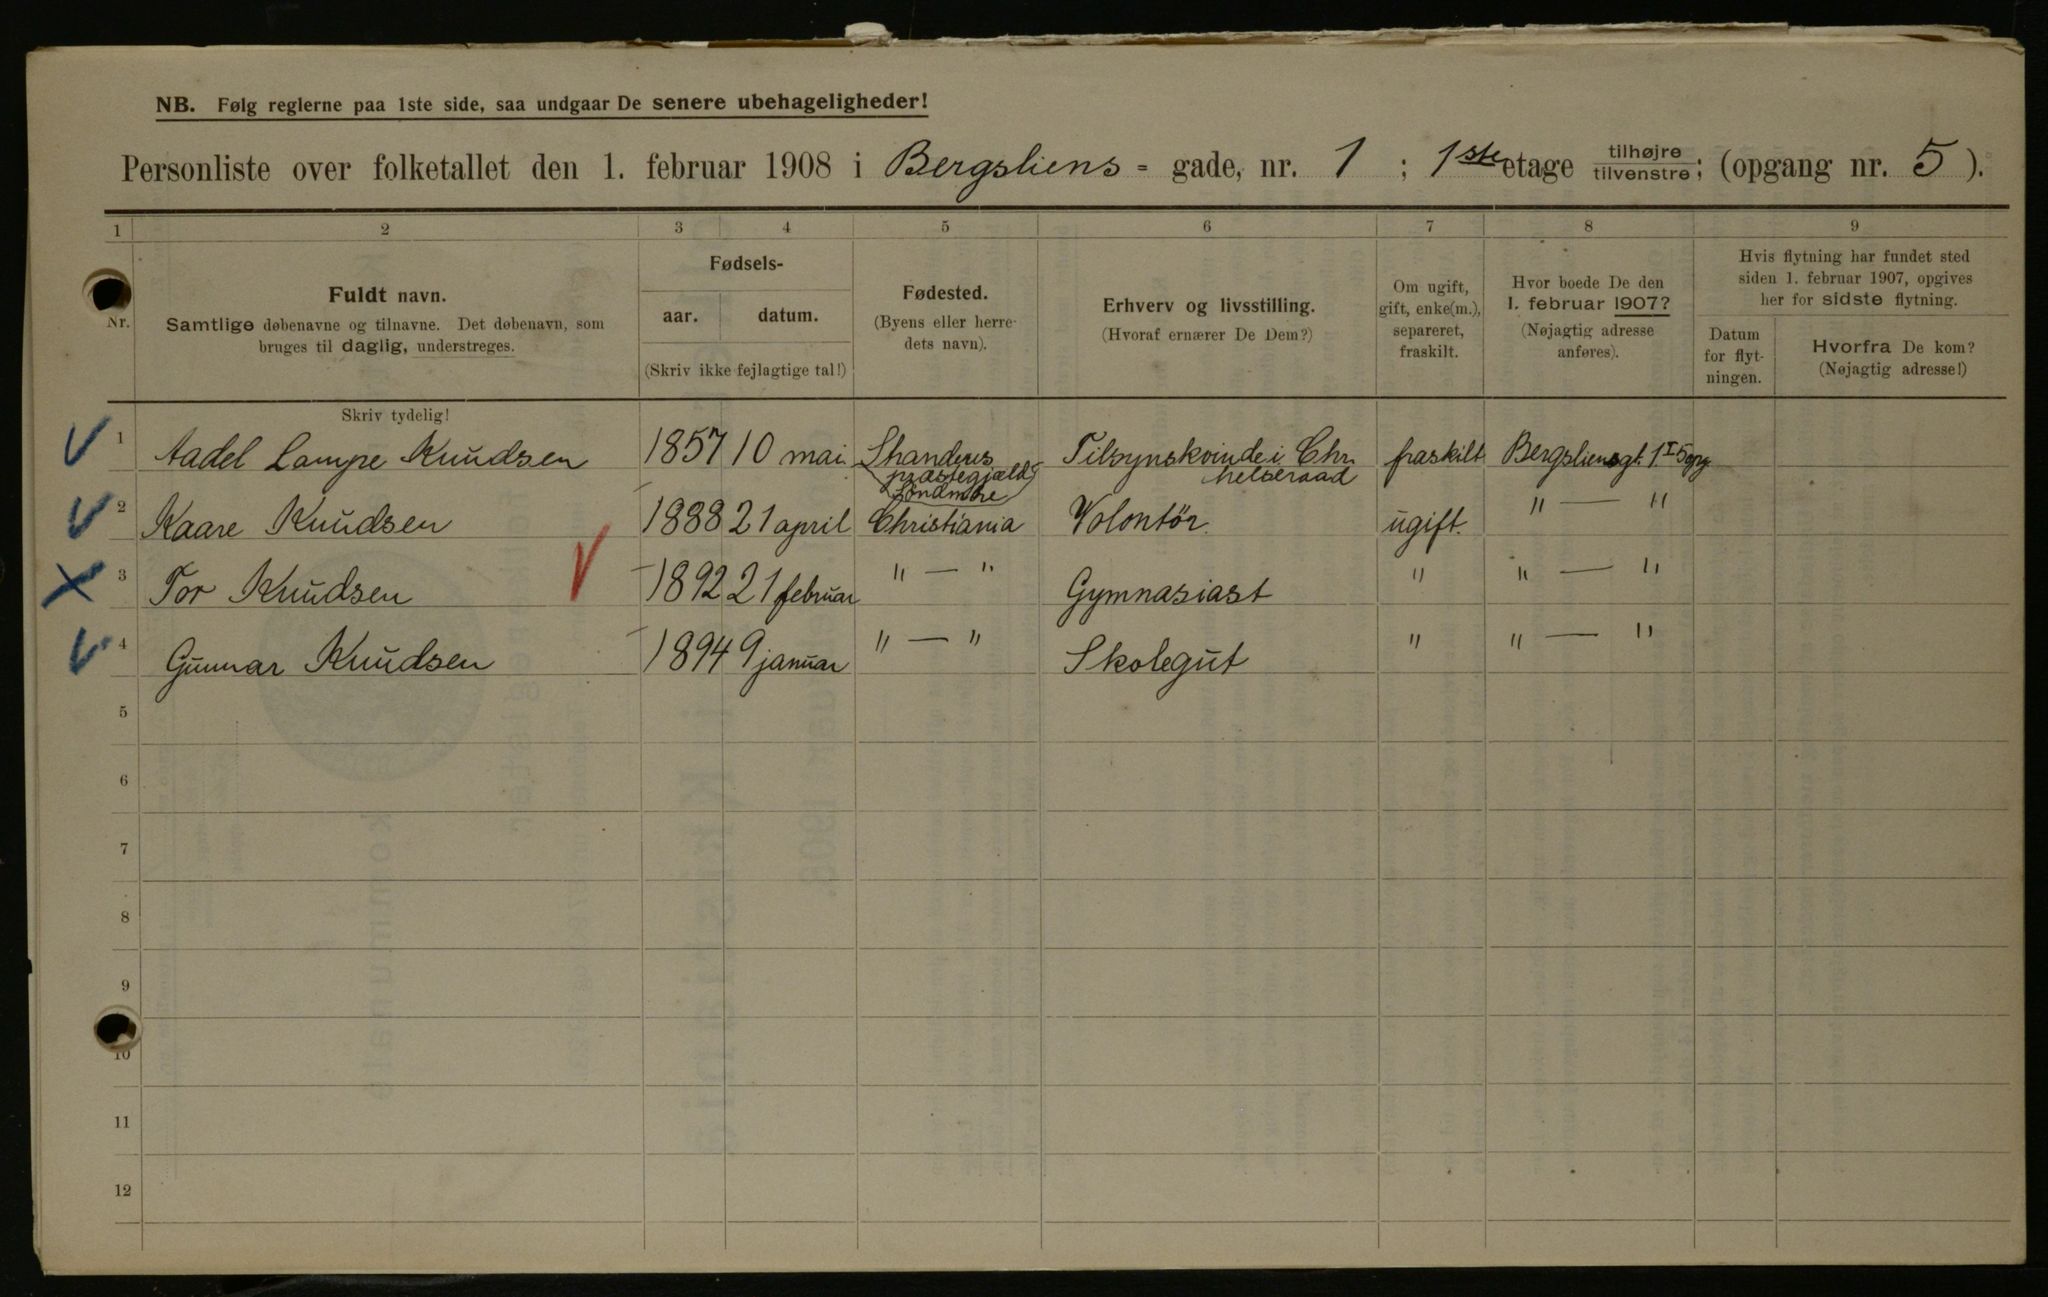 NB. Følg reglerne paa 1ste side, saa undgaar De senere ubehageligheder!
Personliste over folketallet den 1. februar 1908 i Bergsliens = gade, nr. 1 ; 1ste etage tilhøjre tilvenstre ; (opgang nr. 5 ).
1 2 3 4 5 6 7 8 9
Nr.
Fuldt navn.
Samtlige døbenavne og tilnavne. Det døbenavn, som
bruges til daglig, understreges.
Skriv tydelig!
Fødsels-
aar. datum.
(Skriv ikke fejlagtige tal!)
Fødested.
(Byens eller herre-
dets navn).
Erhverv og livsstilling.
(Hvoraf ernærer De Dem?)
Om ugift,
gift, enke(m.),
separeret,
fraskilt.
Hvor boede De den
1. februar 1907?
(Nøjagtig adresse
anføres).
Hvis flytning har fundet sted
siden 1. februar 1907, opgives
her for sidste flytning.
Datum
for flyt-
ningen.
Hvorfra De kom?
(Nøjagtig adresse!)
1 Aadel Lampe Knudsen 1857 10 mai præstegjæld Söndmöre Tilsynskvinde i Chr. helseraad fraskilt Bergsliensgt. 1 I 5 opg
2 Kaare Knudsen 1888 21 april Christiania Volontör. ugift. " — "
3 Tor Knudsen 1892 21 februar " — " Gymnasiast " " — "
4 Gunnar Knudsen 1894 9 januar " — " Skolegut " " — "
5
6
7
8
9
10
11
12